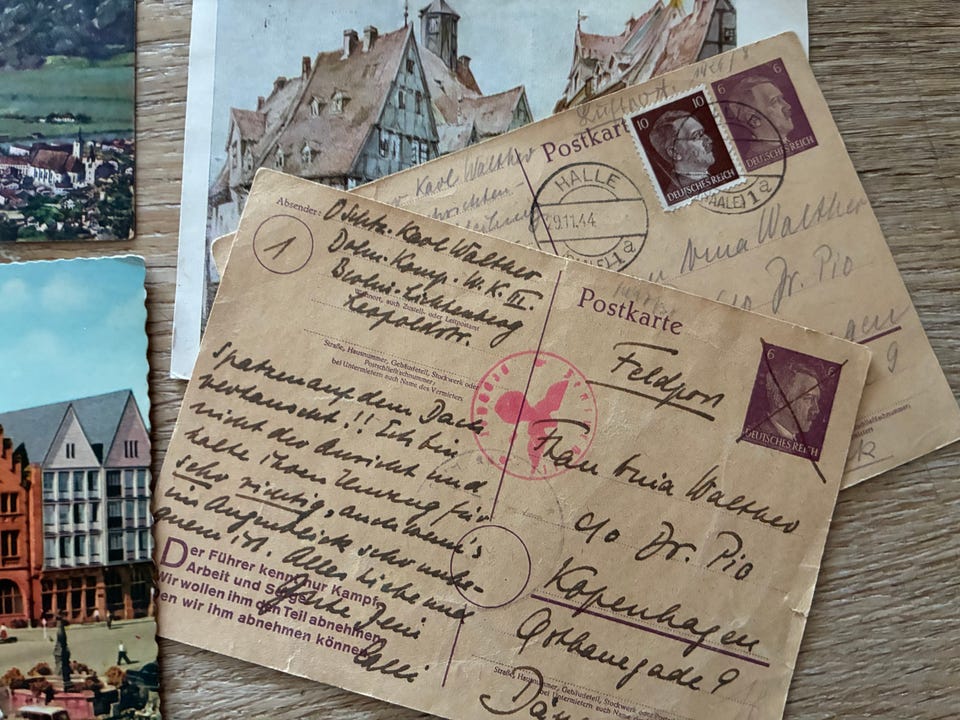 Luftpost
Postkarte
6
6
10
10
DEUTSCHES REICH
DEUTSCHES REICH
HALLE
29.11.44
(SAALE) 1
a
Karl Walther
Nina Walther
c/o Dr. Pio
9
Absender:
Karl Walther
Dolm. Komp. W. K. III.
Berlin-Lichtenberg
Wohnort, auch Zustell- oder Leitpostamt
Leopoldstr.
Straße, Hausnummer, Gebäudeteil, Stockwerk oder
Postschließfachnummer;
bei Untermietern auch Name des Vermieters
1
Postkarte
Feldpost
6
6
DEUTSCHES REICH
Spatzen auf dem Dach
vertauscht!! Ich bin
nicht der Ansicht und
halte Ihren Umzug für
sehr richtig, auch wenn's
im Augenblick sehr unbe-
quem ist. Alles Liebe und
Gute
Der Führer kennt nur Kampf,
Arbeit und Sorge.
Wir wollen ihm den Teil abnehmen,
den wir ihm abnehmen können.
Frau Nina Walther
c/o Dr. Pio
Kopenhagen
Gothersgade 9
Straße, Hausnummer, Gebäudeteil, Stockwerk oder Postschließfachnummer;
bei Untermietern auch Name des